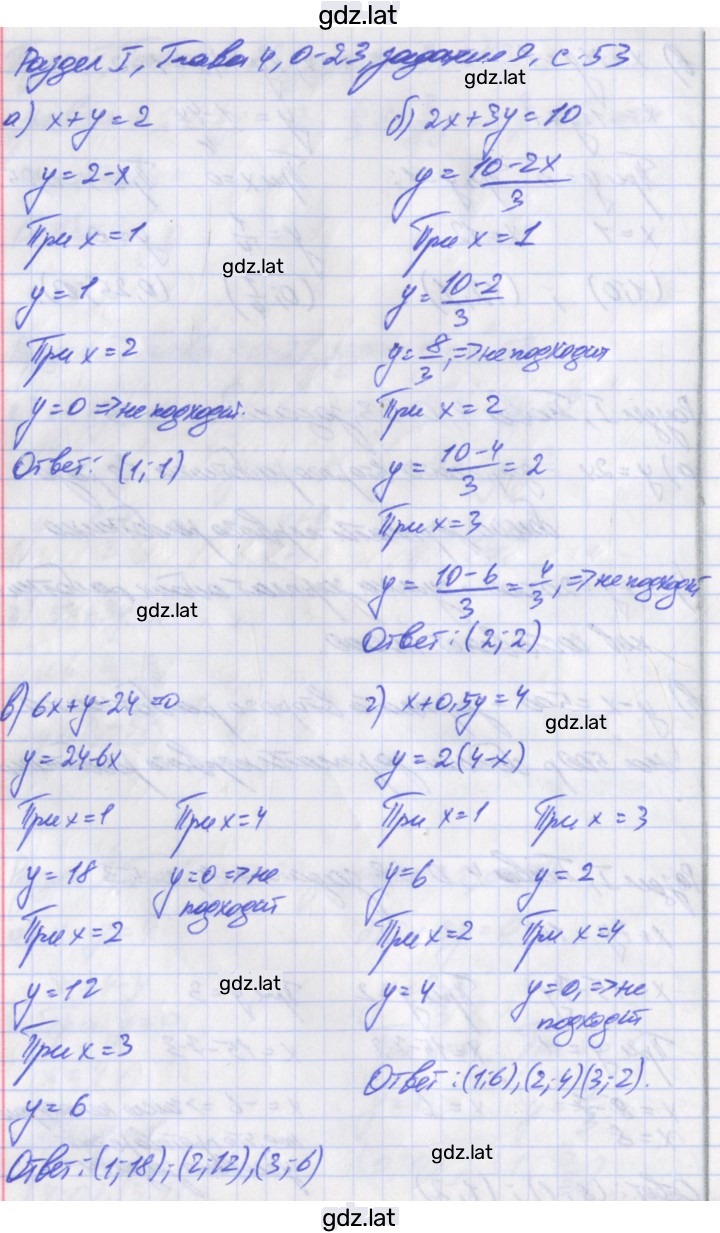 gdz.lat
Раздел I, Глава 4, О-23, задание 9, с. 53
gdz.lat
а) x+y=2
y=2-x
При x=1
gdz.lat
y=1
При x=2
y=0 => не подходит.
Ответ: (1;1)
б) 2x+3y=10
y=(10-2x)/3
При x=1
y=(10-2)/3
y=8/3, => не подходит
При x=2
y=(10-4)/3=2
При x=3
y=(10-6)/3=4/3, => не подходит
Ответ: (2;2)
gdz.lat
в) 6x+y-24=0
y=24-6x
При x=1
y=18
При x=2
y=12
При x=3
y=6
При x=4
y=0 => не
подходит
gdz.lat
Ответ: (1;18);(2;12),(3;6)
г) x+0,5y=4
gdz.lat
y=2(4-x)
При x=1
y=6
При x=2
y=4
При x=3
y=2
При x=4
y=0, => не
подходит
Ответ: (1;6),(2;4)(3;2).
gdz.lat
gdz.lat